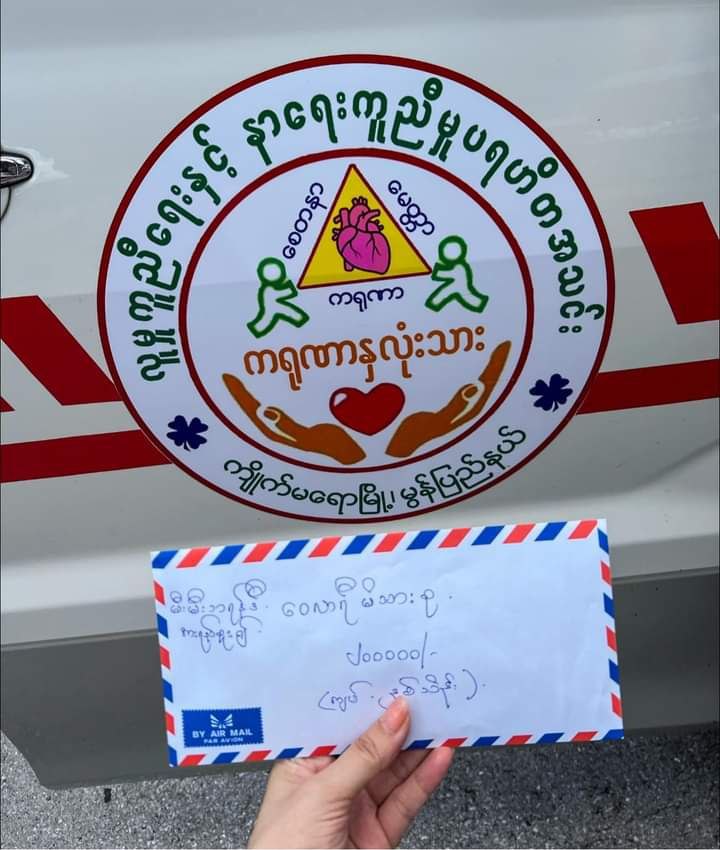 လူမှုကူညီရေးနှင့် နာရေးကူညီမှုပရဟိတအသင်း
စေတနာ
မေတ္တာ
ကရုဏာ
ကရုဏာနှလုံးသား
ကျိုက်မရောမြို့၊ မွန်ပြည်နယ်
မီးမီးဘရန်ဒီ. ဝေလာရီ မိသားစု.
၂၀၀၀၀၀/-
(ကျပ်. နှစ်သိန်း).
BY AIR MAIL
PAR AVION